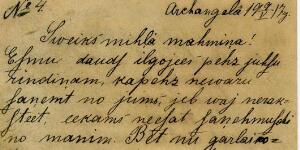 № 4. Archangelā 19 9/I 17g.
Sweiks mihļā mahmiņa!
Esmu daudz ilgojees pehz juhsu
rindiņam, kapehz newaru
saņemt no jums, jeb waj nerak-
steet, eekams neesat saņehmuschi
no manim. Bet nu garlaiko-